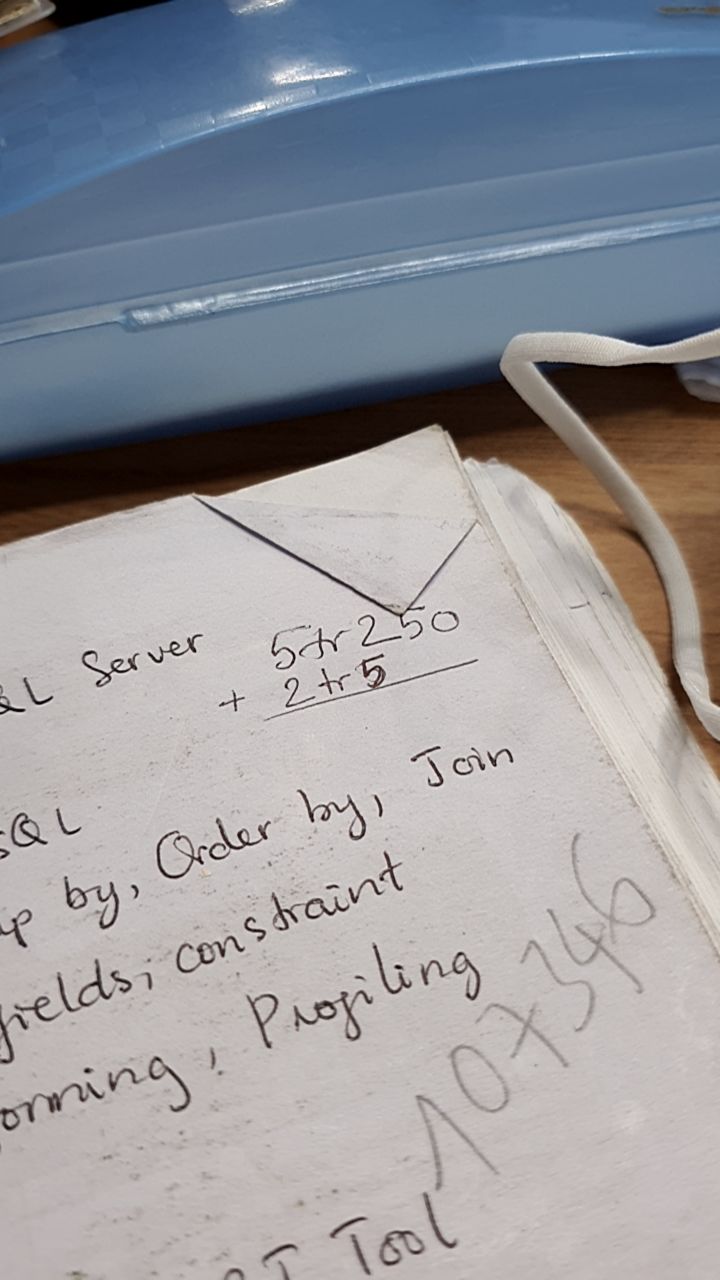 QL Server
5tr250
+ 2tr5
SQL
up by, Order by, Join
fields, constraint
orming, Profiling
107346
Tool